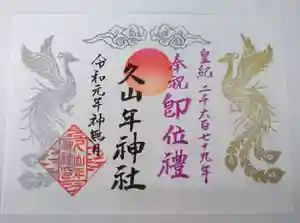 皇紀二千六百七十九年
奉祝
即位禮
久山年神社
令和元年神無月